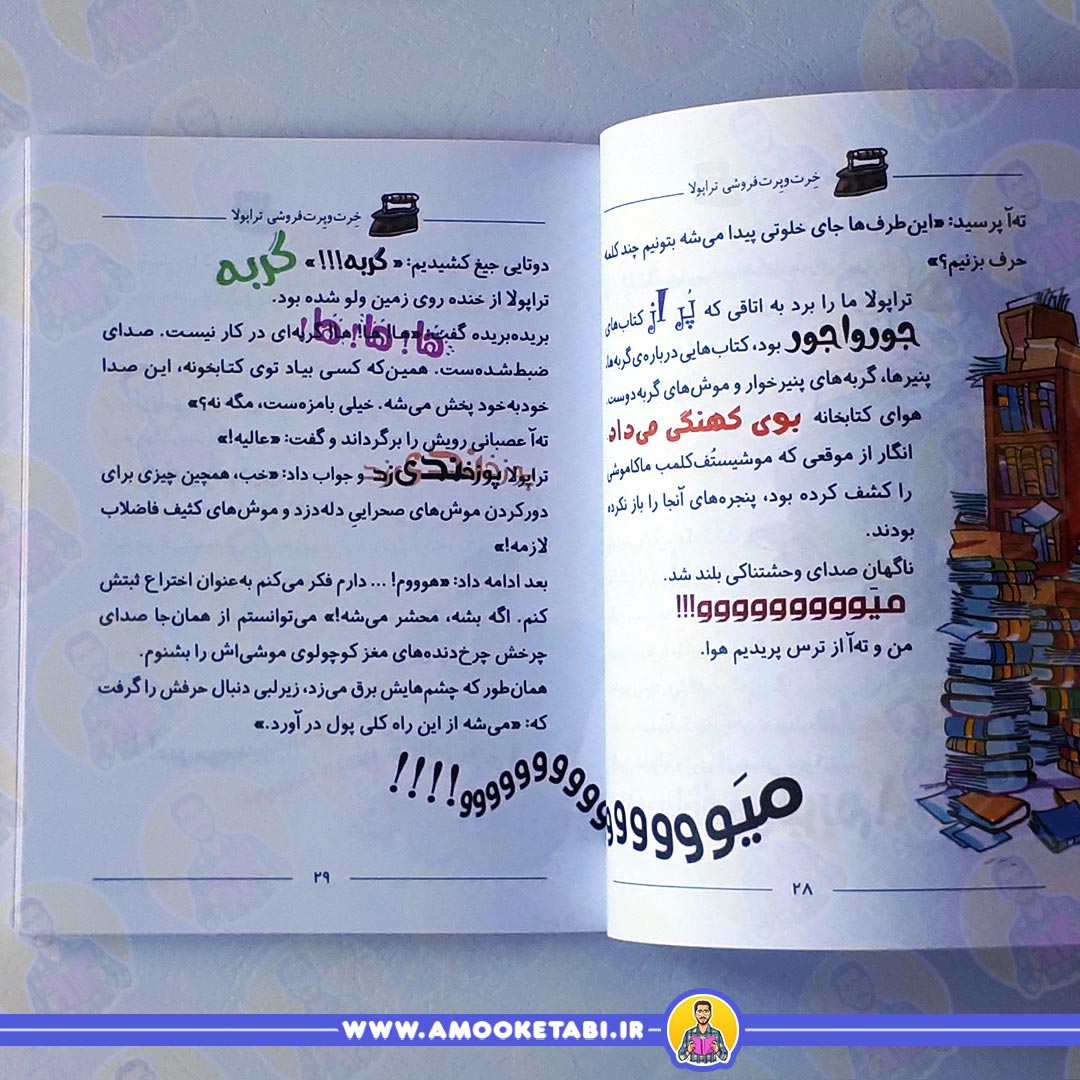 خِرت‌وپِرت‌فروشی تراپولا
ته‌آ پرسید: «این‌طرف‌ها جای خلوتی پیدا می‌شه بتونیم چند کلمه
حرف بزنیم؟»
تراپولا ما را برد به اتاقی که پُر از کتاب‌های
جورواجور بود، کتاب‌هایی درباره‌ی گربه‌ها،
پنیرها، گربه‌های پنیرخوار و موش‌های گربه‌دوست.
هوای کتابخانه بوی کهنگی می‌داد.
انگار از موقعی که موشیستُف‌کلمب ماکاموشی
را کشف کرده بود، پنجره‌های آنجا را باز نکرده
بودند.
ناگهان صدای وحشتناکی بلند شد.
میَوووووووووو!!!
من و ته‌آ از ترس پریدیم هوا.
میَوووووووووووووووووو!!!!
۲۸
خِرت‌وپِرت‌فروشی تراپولا
دوتایی جیغ کشیدیم: «گربه!!!» گربه
تراپولا از خنده روی زمین ولو شده بود.
بریده‌بریده گفت: «ها! ها! ها! گربه‌ای در کار نیست. صدای
ها! ها! ها!
ضبط‌شده‌ست. همین‌که کسی بیاد توی کتابخونه، این صدا
خودبه‌خود پخش می‌شه. خیلی بامزه‌ست، مگه نه؟»
ته‌آ عصبانی رویش را برگرداند و گفت: «عالیه!»
تراپولا پوزخندی زد و جواب داد: «خب، همچین چیزی برای
دورکردن موش‌های صحراییِ دله‌دزد و موش‌های کثیف فاضلاب
لازمه!»
بعد ادامه داد: «هوووم! ... دارم فکر می‌کنم به‌عنوان اختراع ثبتش
کنم. اگه بشه، محشر می‌شه!» می‌توانستم از همان‌جا صدای
چرخش چرخ‌دنده‌های مغز کوچولوی موشی‌اش را بشنوم.
همان‌طور که چشم‌هایش برق می‌زد، زیرلبی دنبال حرفش را گرفت
که: «می‌شه از این راه کلی پول در آورد.»
۲۹
WWW.AMOOKETABI.IR